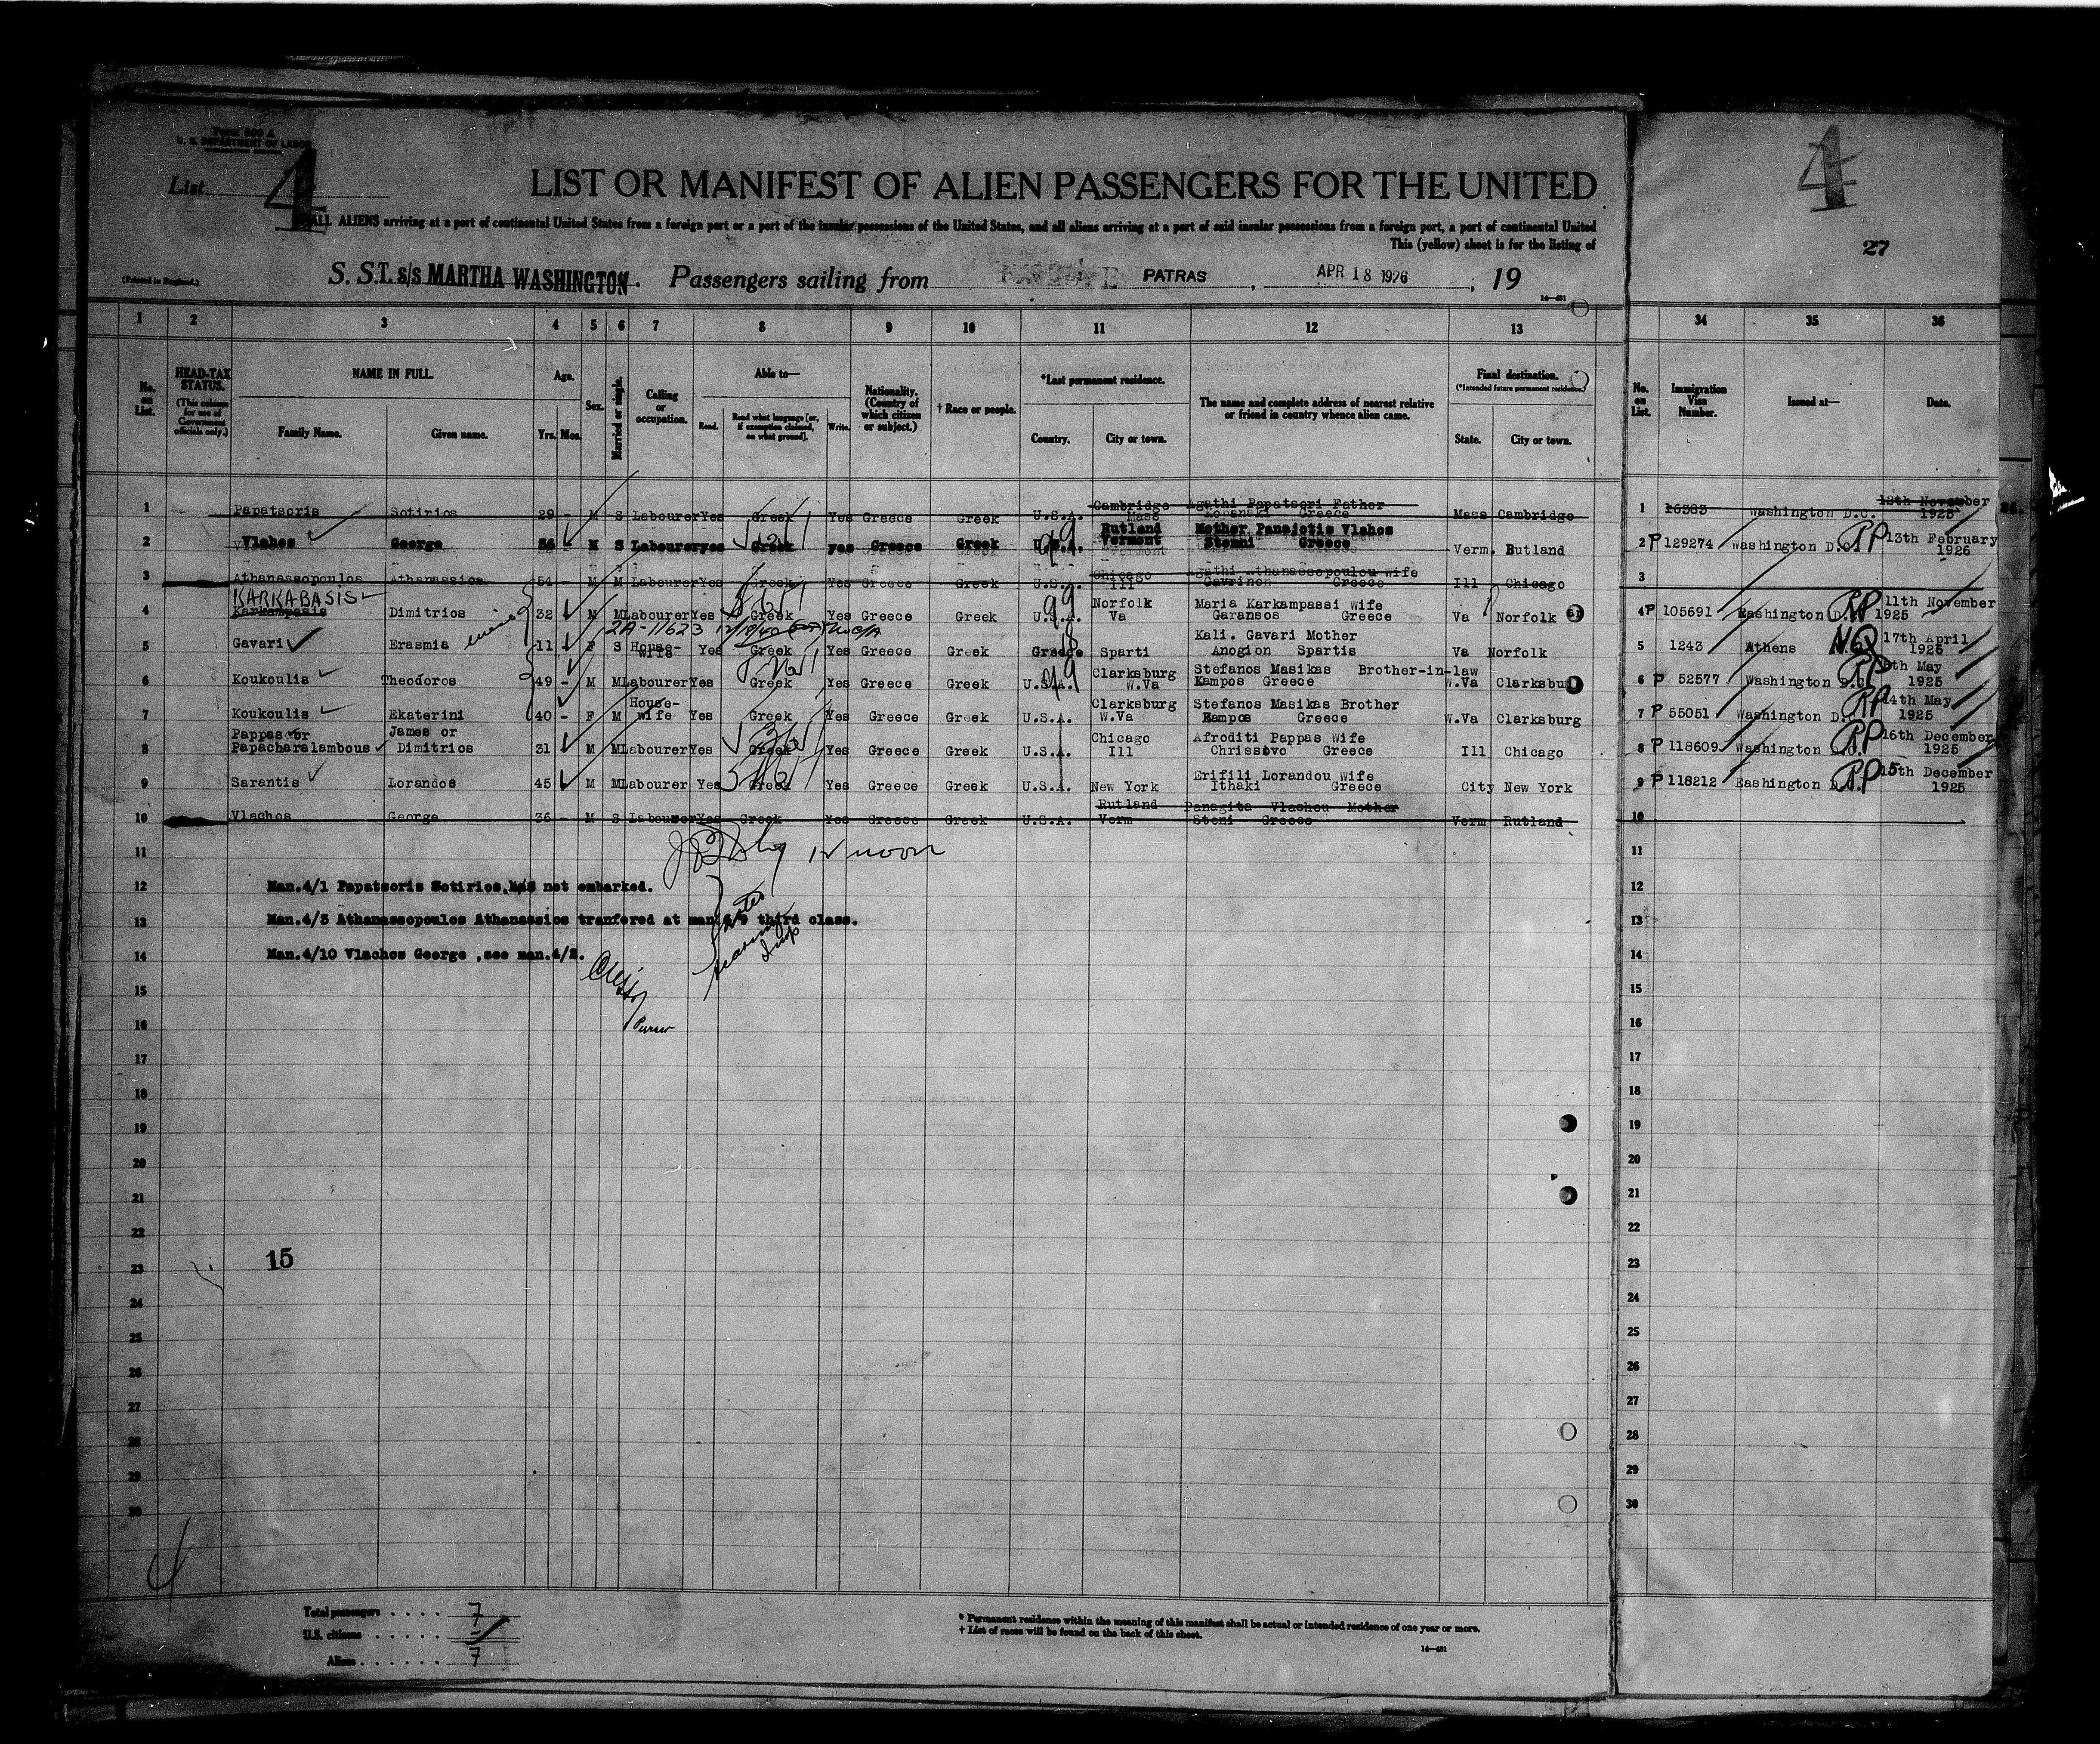 Form 500 A
U. S. DEPARTMENT OF LABOR
List 4
LIST OR MANIFEST OF ALIEN PASSENGERS FOR THE UNITED
ALL ALIENS arriving at a port of continental United States from a foreign port or a port of the insular possessions of the United States, and all aliens arriving at a port of said insular possessions from a foreign port, a port of continental United
This (yellow) sheet is for the listing of
(Printed in England.)
S. S. T. s/s MARTHA WASHINGTON. Passengers sailing from PATRAS, APR 18 1926, 19
14—481
4
27
1 2 3 4 5 6 7 8 9 10 11 12 13 34 35 36
No. on List.
HEAD-TAX STATUS. (This column for use of Government officials only.)
NAME IN FULL.
Family Name. Given name.
Age.
Yrs. Mos.
Sex.
Married or single.
Calling or occupation.
Able to—
Read. Read what language [or, if exemption claimed, on what ground]. Write.
Nationality. (Country of which citizen or subject.)
† Race or people.
*Last permanent residence.
Country. City or town.
The name and complete address of nearest relative or friend in country whence alien came.
Final destination.
(*Intended future permanent residence.)
State. City or town.
No. on List.
Immigration Visa Number.
Issued at—
Date.
1 Papatsoris Sotirios 29 - M S Labourer Yes Greek Yes Greece Greek U.S.A. Cambridge Mass Agathi Papatsori Father Greece Mass Cambridge 1 16383 Washington D.C. 18th November 1925
2 Vlahos George 36 M S Labourer yes Greek yes Greece Greek U.S.A. Rutland Vermont Mother Panajotis Vlahos Stenni Greece Verm. Rutland 2 P 129274 Washington D.C. RP 13th February 1926
3 Athanassopoulos Athanassios 54 - M M Labourer Yes Greek Yes Greece Greek U.S.A. Chicago Ill Agathi Athanassopoulou wife Gavrinon Greece Ill Chicago 3
KARKABASIS
4 Karkampasis Dimitrios 32 M M Labourer Yes Greek Yes Greece Greek U.S.A. Norfolk Va Maria Karkampassi Wife Garansos Greece Va Norfolk 4 P 105691 Washington D.C. RP 11th November 1925
2A-11623
5 Gavari Erasmia niece 11 F S House-wife Yes Greek Yes Greece Greek Greece Sparti Kali. Gavari Mother Anogion Spartis Va Norfolk 5 1243 Athens N.Q 17th April 1926
6 Koukoulis Theodoros 49 - M M Labourer Yes Greek Yes Greece Greek U.S.A. Clarksburg W.Va Stefanos Masikas Brother-in-law Kampos Greece W.Va Clarksburg 6 P 52577 Washington D.C. RP May 1925
7 Koukoulis Ekaterini 40 - F M House-wife Yes Greek Yes Greece Greek U.S.A. Clarksburg W.Va Stefanos Masikas Brother Kampos Greece W.Va Clarksburg 7 P 55051 Washington D.C. RP 14th May 1925
8 Pappas or Papacharalambous James or Dimitrios 31 M M Labourer Yes Greek Yes Greece Greek U.S.A. Chicago Ill Afroditi Pappas Wife Chrissovo Greece Ill Chicago 8 P 118609 Washington D.C. RP 16th December 1925
9 Sarantis Lorandos 45 M M Labourer Yes Greek Yes Greece Greek U.S.A. New York Erifili Lorandou Wife Ithaki Greece City New York 9 P 118212 Washington D.C. RP 15th December 1925
10 Vlachos George 36 - M S Labourer Yes Greek Yes Greece Greek U.S.A. Rutland Verm Panagita Vlachou Mother Steni Greece Verm Rutland 10
11 12 noon 11
12 Man.4/1 Papatsoris Sotirios, has not embarked. 12
13 Man.4/3 Athanassopoulos Athanassios tranfered at man. third class. 13
14 Man.4/10 Vlachos George ,see man.4/2. 14
15 15
16 Purser 16
17 17
18 18
19 19
20 20
21 21
22 22
15
23 23
24 24
25 25
26 26
27 27
28 28
29 29
30 30
Total passengers . . . . 7
U.S. citizens . . . . . . -
Aliens . . . . . . 7
* Permanent residence within the meaning of this manifest shall be actual or intended residence of one year or more.
† List of races will be found on the back of this sheet.
14—481